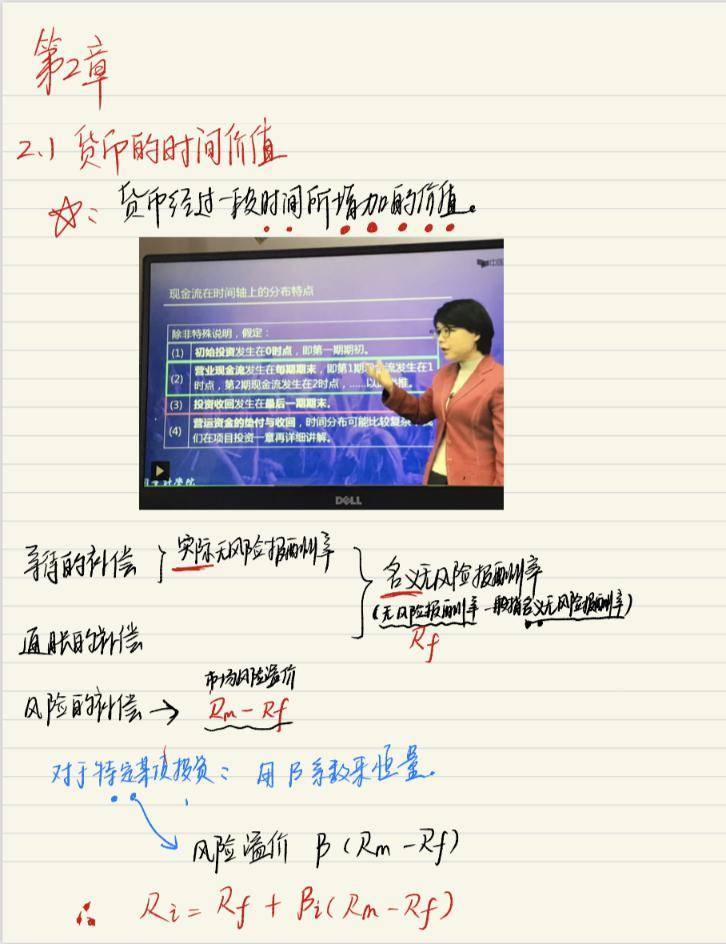 第2章
2.1 货币的时间价值
☆: 货币经过一段时间所增加的价值。
中国
现金流在时间轴上的分布特点
除非特殊说明，假定：
(1) 初始投资发生在0时点，即第一期期初。
(2) 营业现金流发生在每期期末，即第1期现金流发生在1
时点，第2期现金流发生在2时点，……以此类推。
(3) 投资收回发生在最后一期期末。
(4) 营运资金的垫付与收回，时间分布可能比较复杂，我
们在项目投资一章再详细讲解。
DELL
等待的补偿 } 实际无风险报酬率
通胀的补偿
} 名义无风险报酬率
(无风险报酬率一般指名义无风险报酬率)
Rf
市场风险溢价
风险的补偿 → Rm - Rf
对于特定某项投资: 用β系数来恒量.
风险溢价 β(Rm - Rf)
∴ Ri = Rf + βi(Rm - Rf)